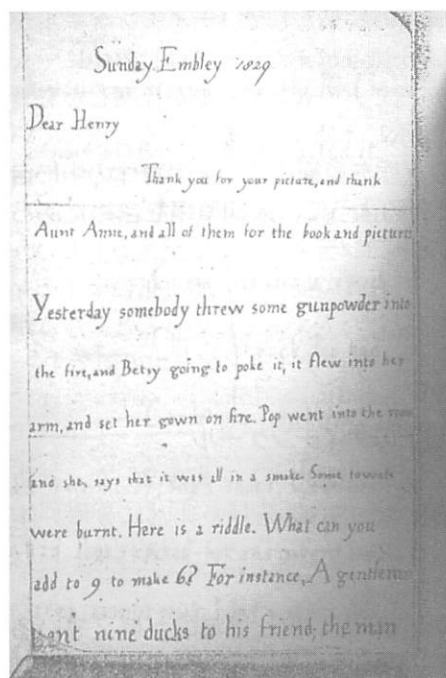 Sunday Embley 1829
Dear Henry
Thank you for your picture, and thank
Aunt Anne, and all of them for the book and pictures
Yesterday somebody threw some gunpowder into
the fire, and Betsy going to poke it, it flew into her
arm, and set her gown on fire. Pop went into the room
and she says that it was all in a smoke. Some towels
were burnt. Here is a riddle. What can you
add to 9 to make 6? For instance, A gentleman
sent nine ducks to his friend; the man